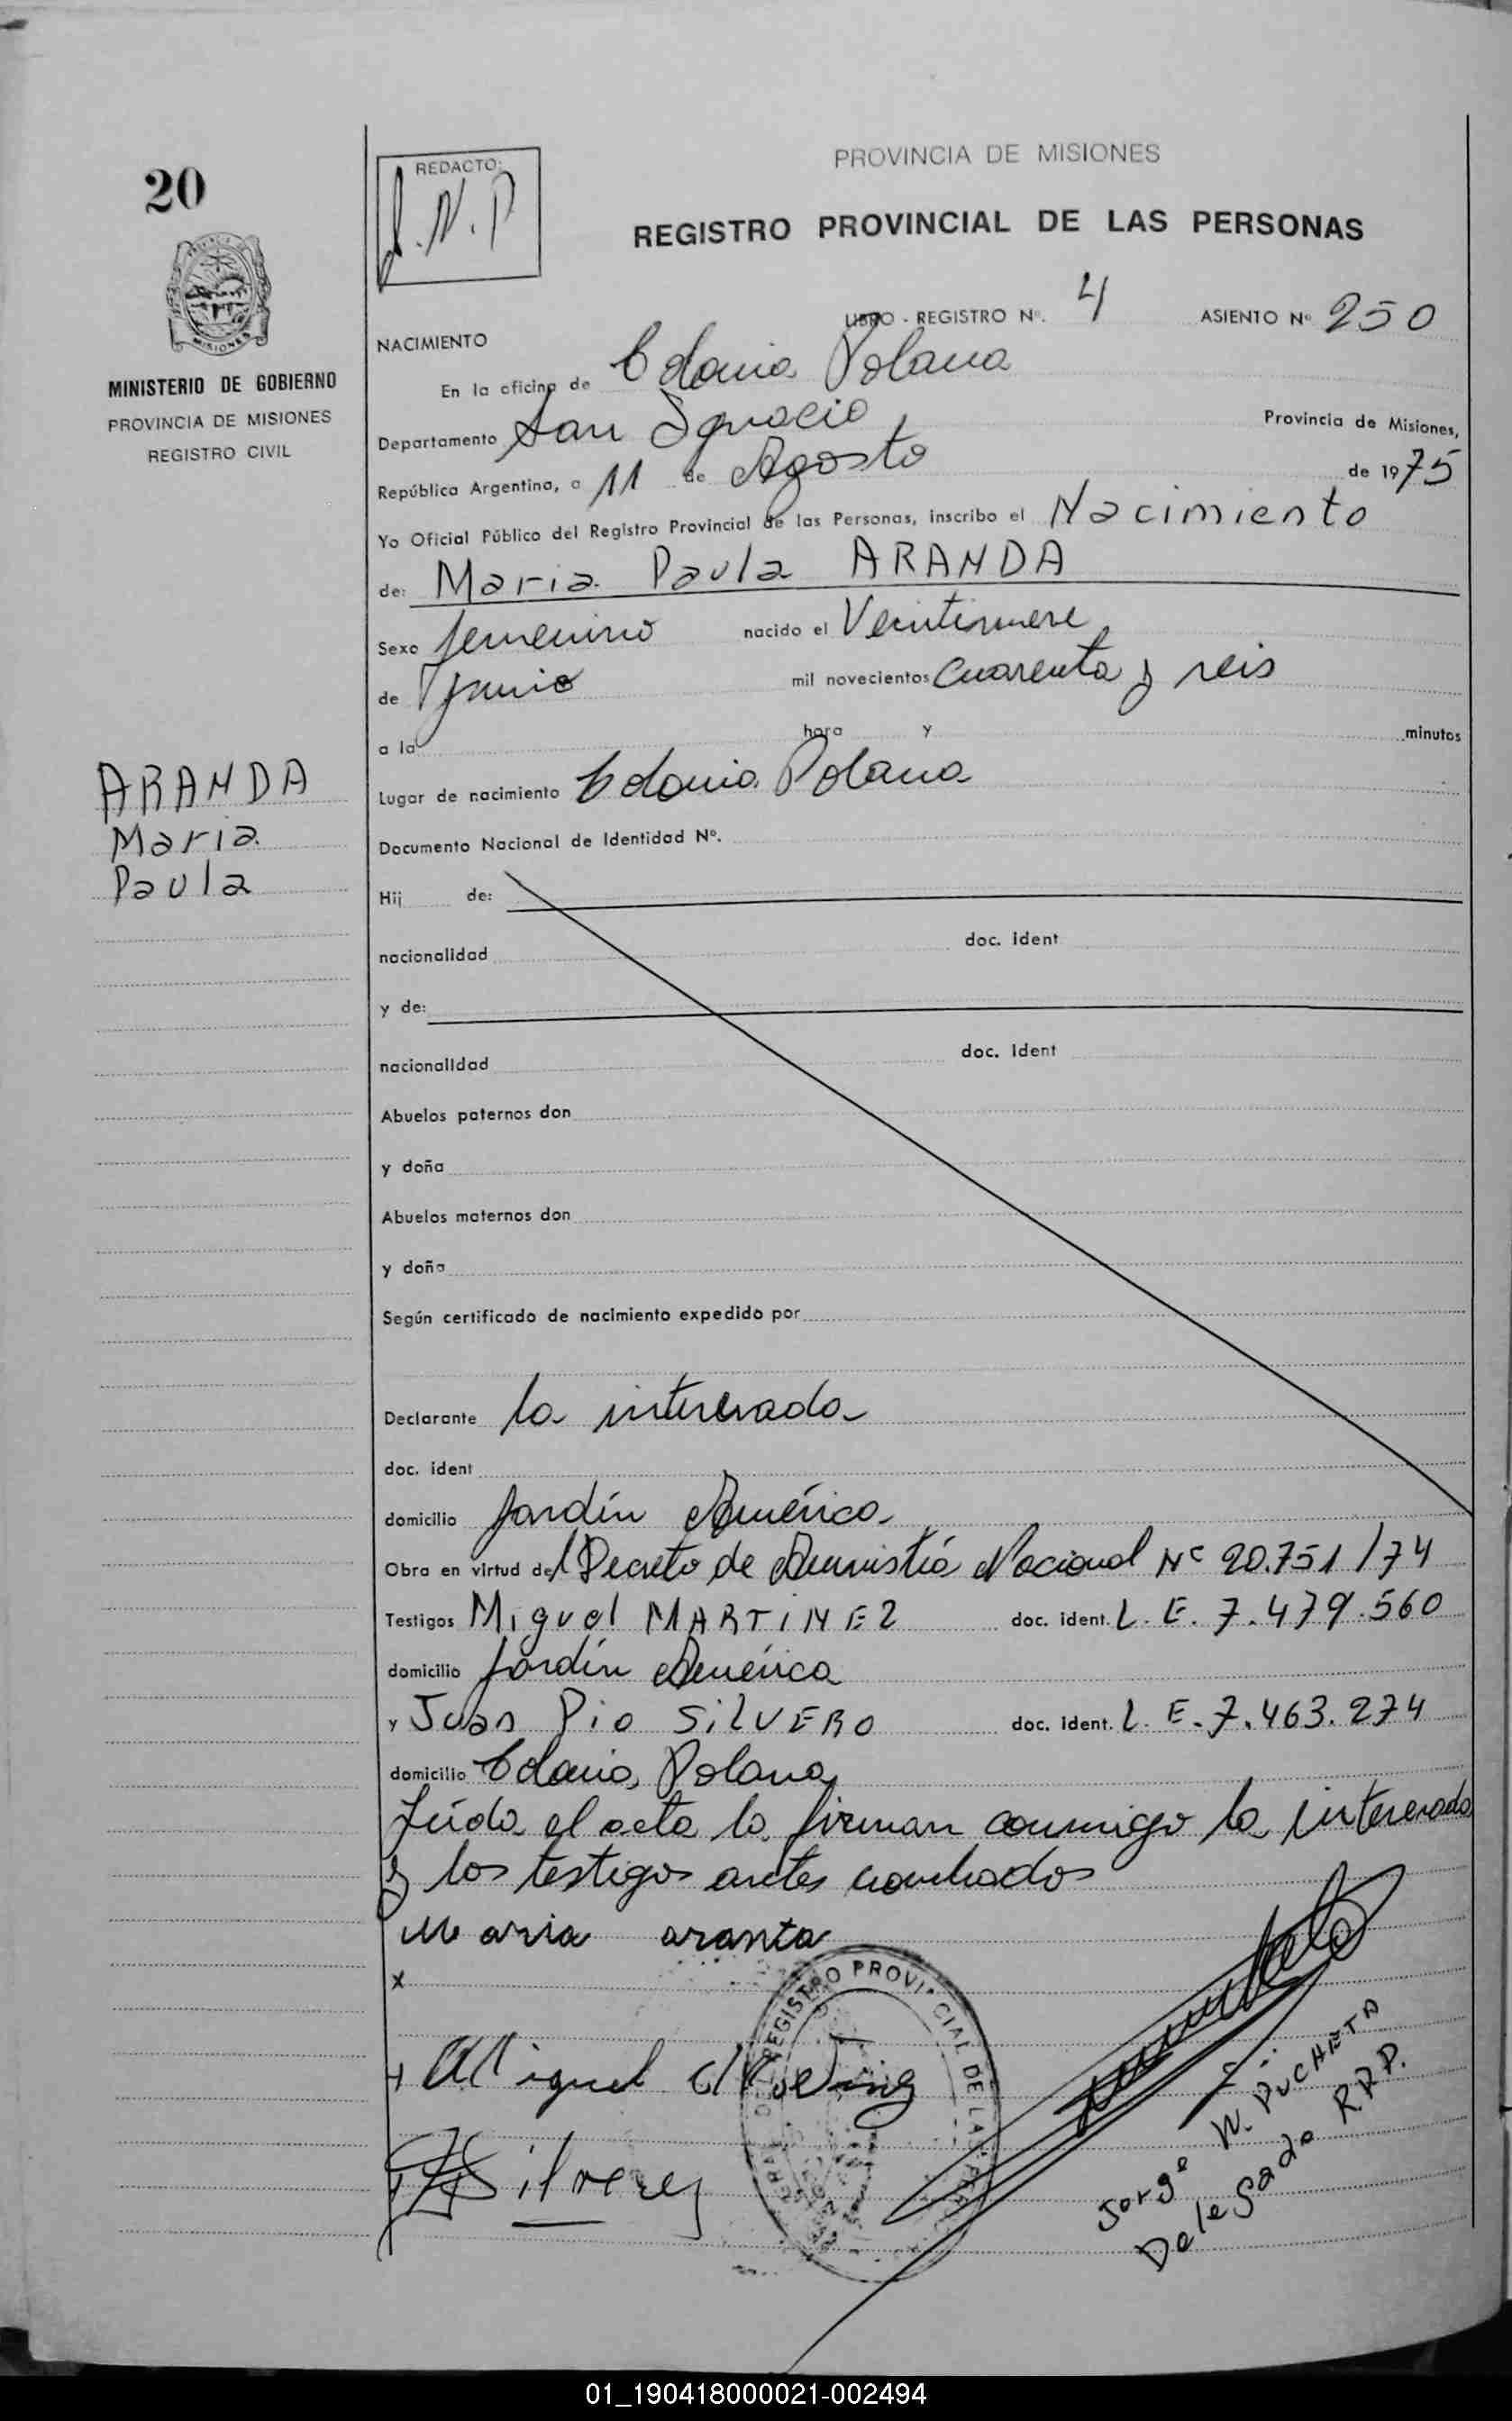 20
REDACTO:
J.N.P
PROVINCIA DE MISIONES
REGISTRO PROVINCIAL DE LAS PERSONAS
MISIONES
MINISTERIO DE GOBIERNO
PROVINCIA DE MISIONES
REGISTRO CIVIL
LIBRO - REGISTRO Nº. 4 ASIENTO Nº 250
NACIMIENTO
En la oficina de Colonia Polana
Departamento San Ignacio Provincia de Misiones,
República Argentina, a 11 de Agosto de 1975
Yo Oficial Público del Registro Provincial de las Personas, inscribo el Nacimiento
de: Maria Paula ARANDA
Sexo femenino nacido el Veintinueve
de Junio mil novecientos cuarenta y seis
a la hora y minutos
ARANDA
Maria
Paula
Lugar de nacimiento Colonia Polana
Documento Nacional de Identidad Nº.
Hij de:
nacionalidad doc. ident
y de:
nacionalidad doc. ident
Abuelos paternos don
y doña
Abuelos maternos don
y doña
Según certificado de nacimiento expedido por
Declarante la interesada
doc. ident
domicilio Jardín América
Obra en virtud del Decreto de Amnistía Nacional Nº 20.751/74
Testigos Miguel MARTINEZ doc. ident. L. E. 7.479.560
domicilio Jardín América
y Juan Pio SILVERO doc. ident. L. E. 7.463.274
domicilio Colonia Polana
Leída el acta la firman conmigo la interesada
y los testigos antes nombrados
Maria aranta
x
REGISTRO PROVINCIAL DE LAS
Miguel
Silvero
Jorge W. PUCHETA
Delegado R.R.P.
01_190418000021-002494